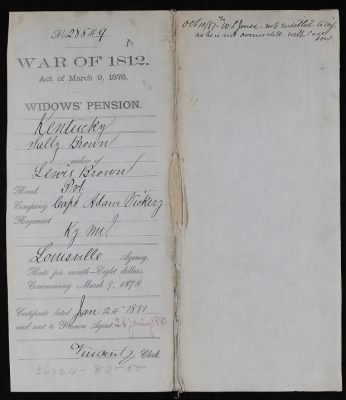 No 28549
WAR OF 1812.
Act of March 9, 1878.
WIDOWS' PENSION.
Kentucky
Sally Brown
widow of
Lewis Brown
Rank Pvt
Company Capt Adam Vickery
Regiment
Ky Ml
Louisville Agency.
Rate per month—Eight dollars.
Commencing March 9, 1878.
Certificate dated Jan 24th 1880
and sent to Pension Agent 28 Jany 1880
Vincent Clerk.
Oct 11/87 W L Jones not entitled to
as he is not connected with case